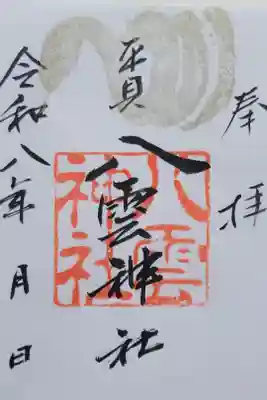 奉拝
貝八雲神社
八雲神社
令和八年 月 日